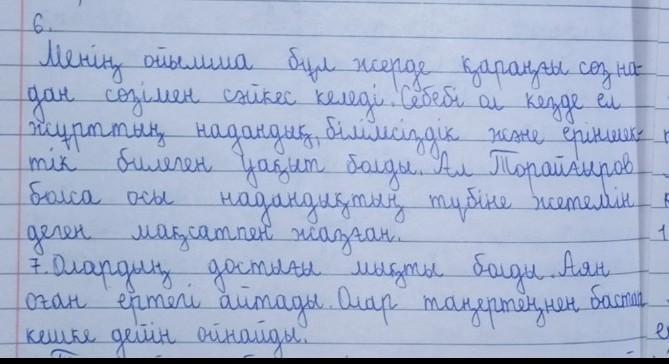 6.
Менің ойымша бұл жерде қараңғы сөз на-
дан сөзімен сәйкес келеді. Себебі ол кезде ел
жұрттың надандық, білімсіздік және еріншек-
тік билеген уақыт болды. Ал Торайғыров
болса осы надандықтың түбіне жетемін
деген мақсатпен жазған.
7. Олардың достығы мықты болды. Аян
оған ертегі айтады. Олар таңертеңнен бастап
кешке дейін ойнайды.